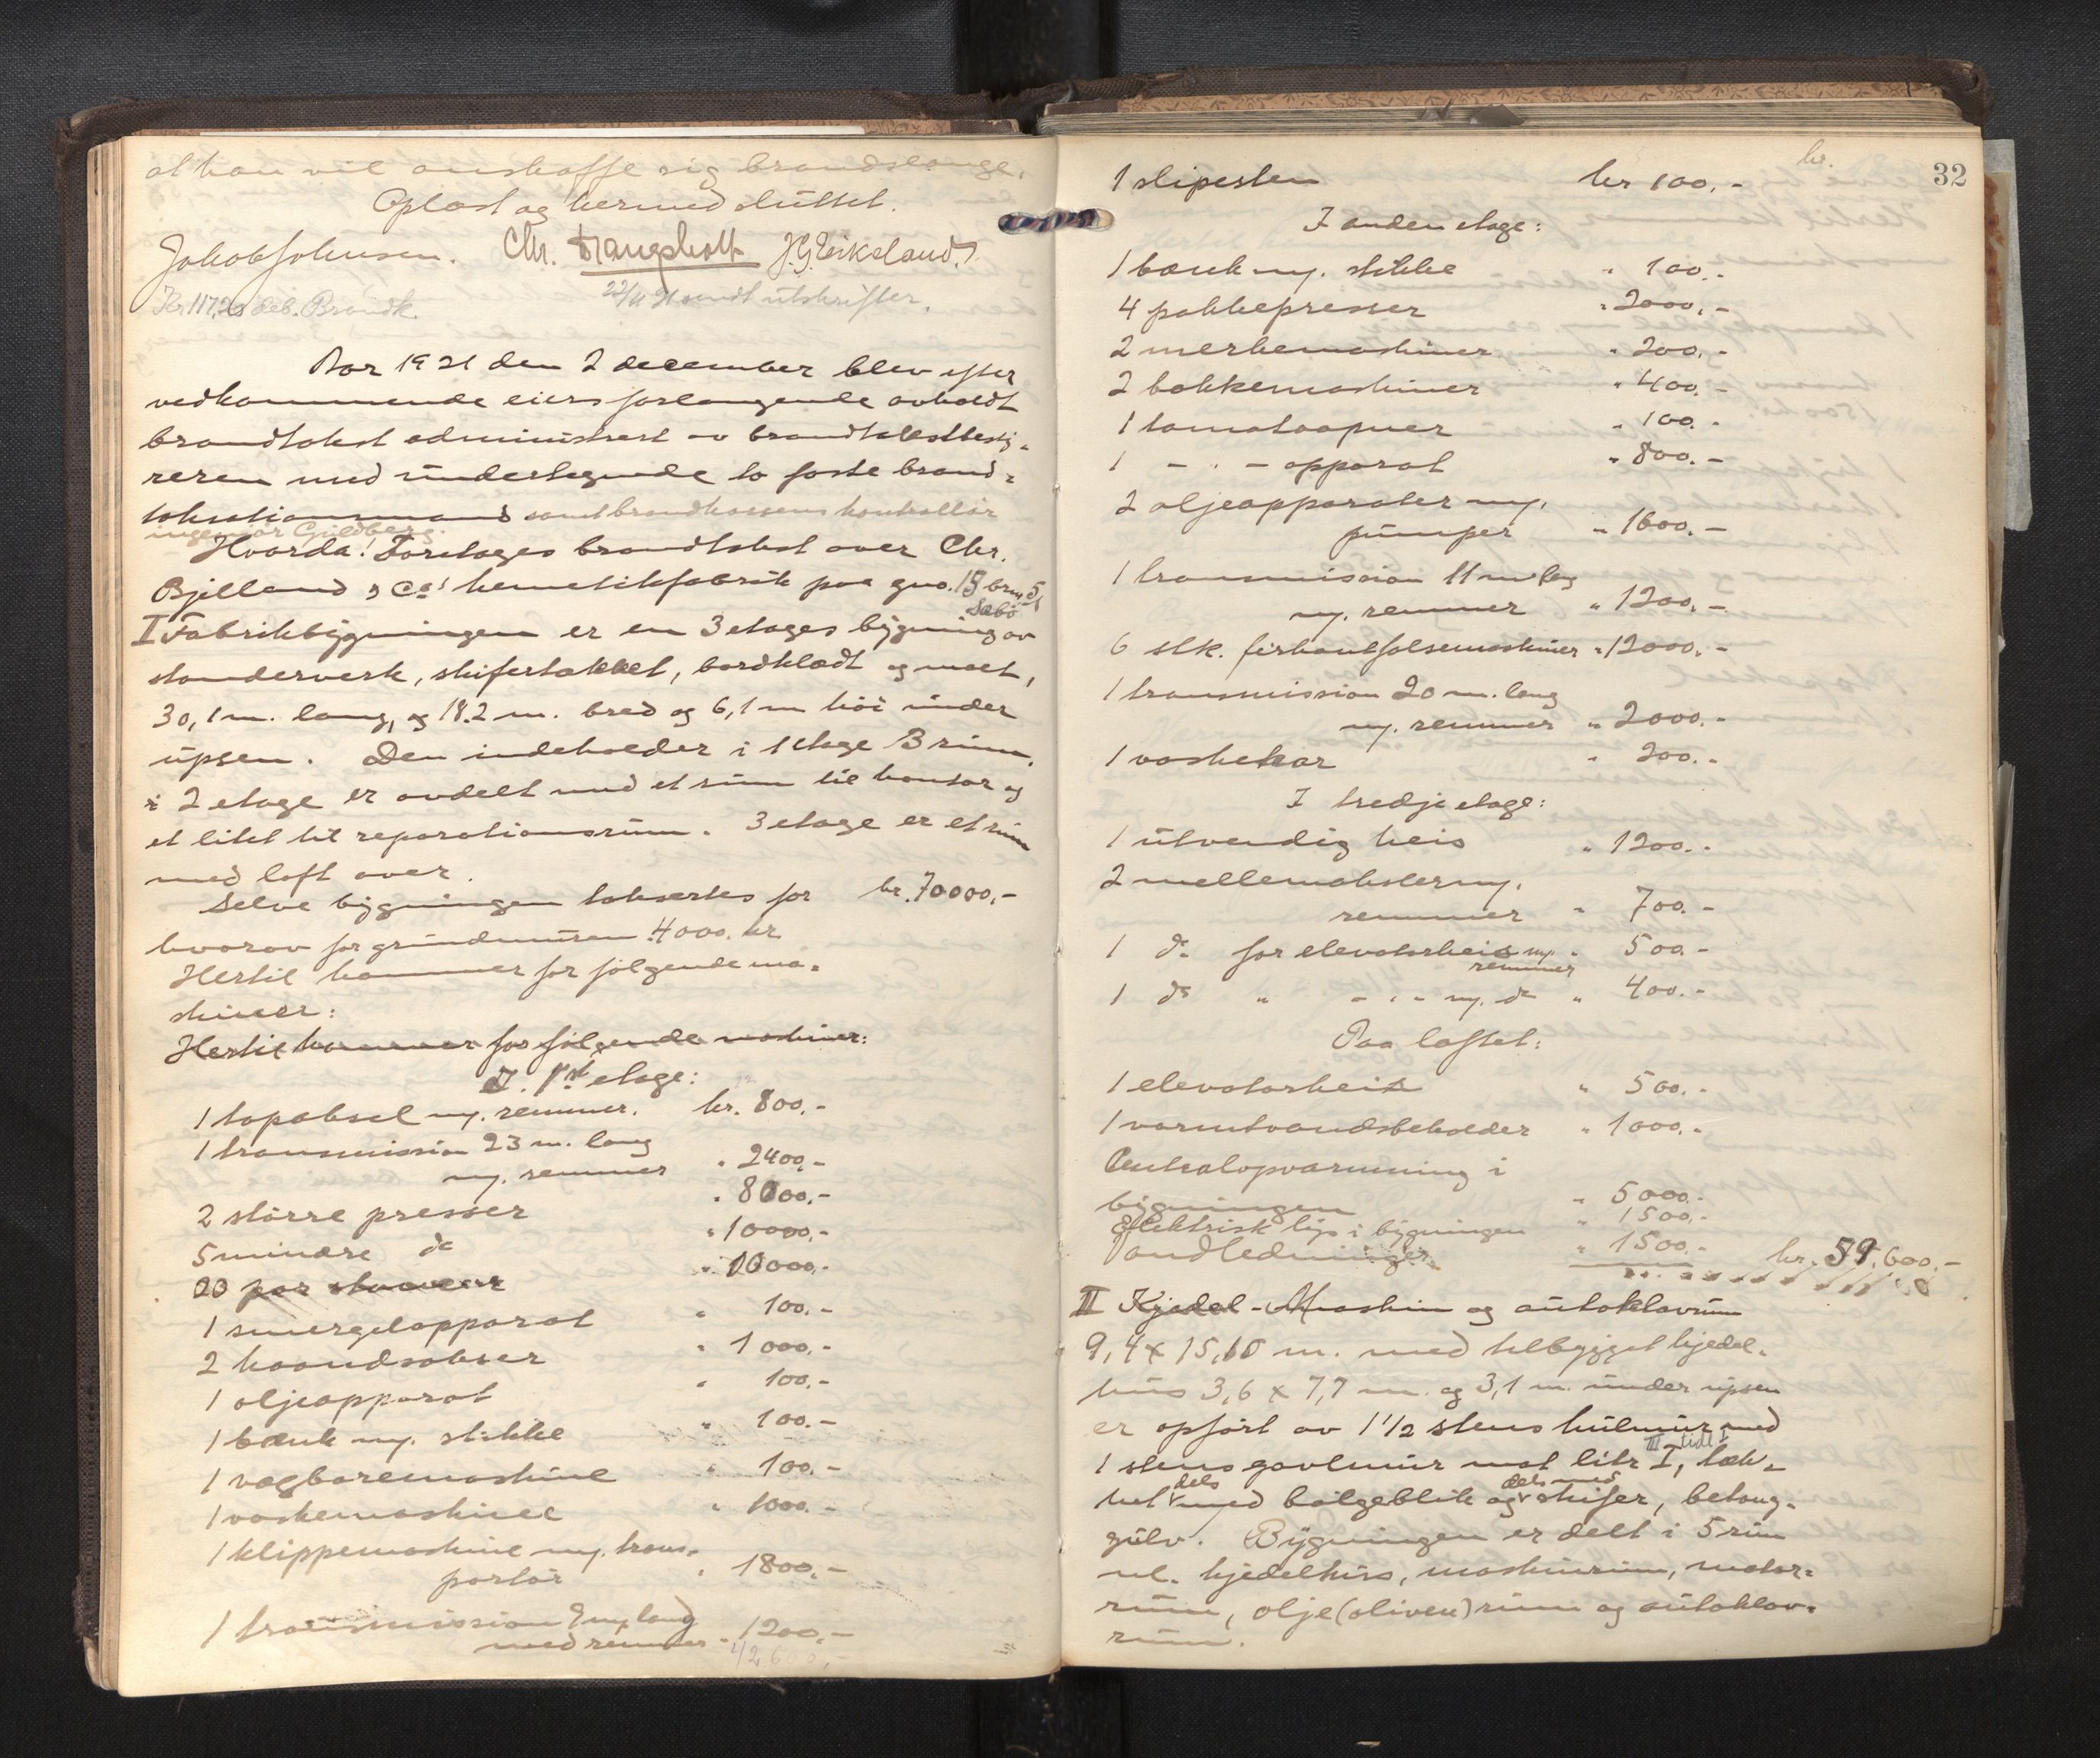 at han vil anskaffe sig brandslange.
Oplæst og hermed sluttet.
Jakob Johnsen. Chr. J.G. Eikeland
Kr 117,20 deb. Brandk.
22/11 21 sendt utskrifter.
Aar 1921 den 2 december blev efter
vedkommende eiers forlangende avholdt
brandtakst administrert av brandtakstbesty-
reren med undertegnede to faste brand-
taksationsmænd samt brandkassens kontrollør
ingeniør Guldberg.
Hvorda! Foretages brandtakst over Chr.
Bjelland & Co' hermetikfabrik paa gno. 15 brn 51
Sæbø
I Fabrikbygningen er en 3 etages bygning av
stenderverk, skifertækket, bordklædt og malt,
30,1 m. lang, og 18.2 m. bred og 6,1 m høi under
upsen. Den indeholder i 1 etage 3 rum.
i 2 etage er avdelt med et rum til kontor og
et litet til reparationsrum. 3 etage er et rum
med loft over.
Selve bygningen takseres for kr. 70000,-
hvorav for grundmuren 4000. kr
Hertil kommer for følgende ma-
skiner:
Hertil kommer for følgende maskiner:
I. 1ste etage:
1 tapaksel m/. remmer. kr. 800,-
1 transmission 23 m. lang
m/. remmer " 2400,-
2 større presser " 8000,-
5 mindre do " 10000,-
20 par stanser " 10000,-
1 smergelapparat " 100,-
2 haandsakser " 1000,-
1 oljeapparat " 100,-
1 bænk m/. stikke " 100.-
1 vaskemaskine " 1000.-
1 klippemaskine m/. trans-
portør " 1800,-
1 transmission 9 m/ lang
med remmer " 1200,-
42600,-
kr.
32
1 slipesten kr 100,-
I anden etage:
1 bænk m/. stikke " 100,-
4 pakkepresser " 2000,-
2 merkemaskiner " 200,-
2 bakkemaskiner " 400,-
1 tomataapner " 100.-
1 - " - apparat " 800.-
2 oljeapparater m/.
pumper " 1600,-
1 transmission 11 m lang
m/. remmer " 1200,-
6 stk. firkantfalsemaskiner " 12000,-
1 transmission 20 m. lang
m/. remmer " 2000,-
1 vaskekar " 200.-
I tredje etage:
1 utvendig heis " 1200.-
2 mellemaksler m/.
remmer " 700.-
1 do for elevatorheis m/. " 500.-
remmer
1 do " - " - m/. do " 400.-
Paa loftet:
1 elevatorheis " 500.-
1 varmtvandsbeholder " 1000.-
Centralopvarmning i
bygningen " 5000.-
Elektrisk lys i bygningen " 1500.-
Vandledninger " 1500.- kr. 59,600.-
II Kjedel-Maskin og autoklavrum
9,4 x 15,10 m. med tilbygget kjedel-
hus 3,6 x 7,7 m. og 3,1 m. under upsen
er opført av 1 1/2 stens hulmur med
III tidl I
1 stens gavlmur mot litr I, tæk-
dels dels med
ket med bølgeblik og skifer, betong-
gulv. Bygningen er delt i 5 rum
nl. kjedelhus, maskinrum, motor-
rum, olje(oliven)rum og autoklav-
rum.